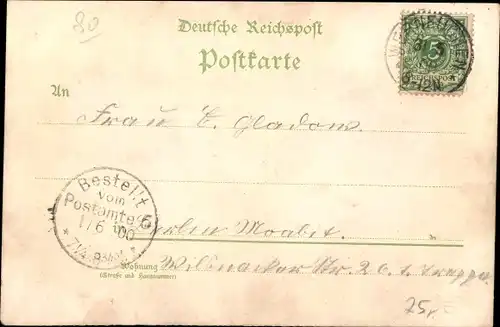 80
Deutsche Reichspost
Postkarte
5
REICHSPOST
An
Frau E. Gladow.
Bestellt
vom
Postamte
1/6 00
Berlin Moabit.
Wohnung
(Straße und Hausnummer)
Wilsnacker Str. 26. 1. Treppe.
75,-